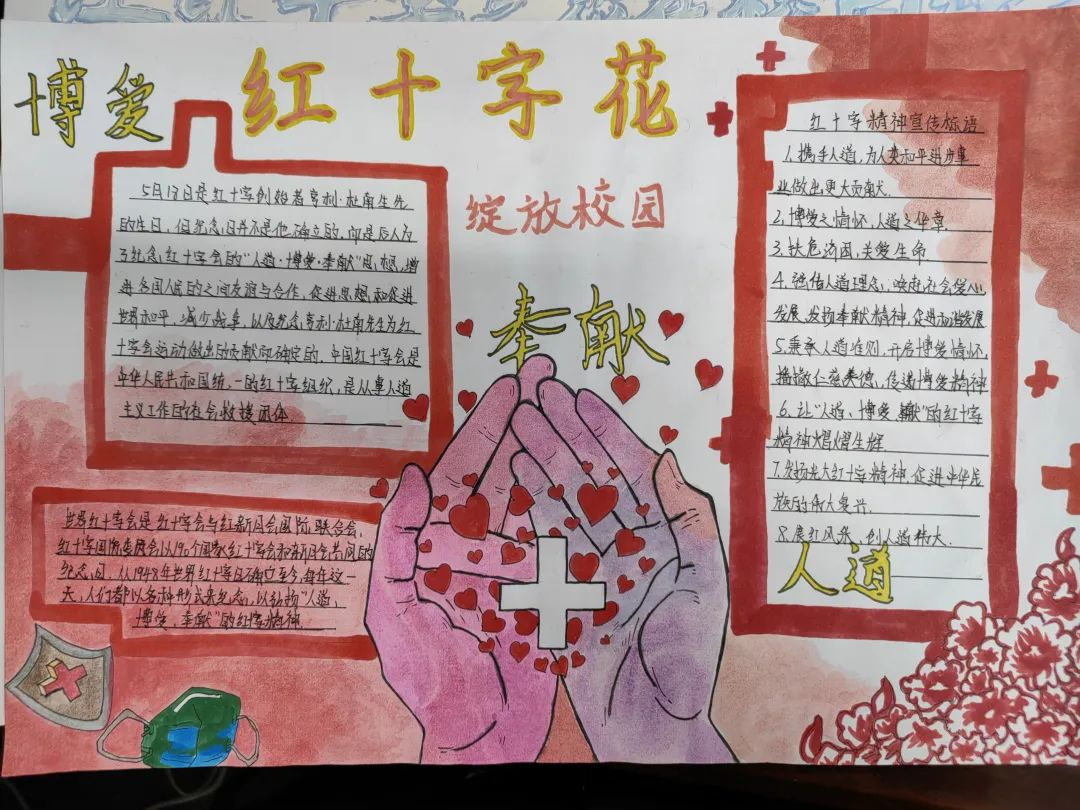 博爱
红十字花
绽放校园
奉献
5月13日是红十字创始者亨利·杜南生先
的生日,但纪念日并不是他确立的,而是后人为
了纪念红十字会的"人道·博爱·奉献"思想,增
进各国人民的之间友谊与合作,促进思想和促进
世界和平,减少战争,以及纪念亨利·杜南先生为红
十字会运动做出的贡献而确定的,中国红十字会是
中华人民共和国统一的红十字组织,是从事人道
主义工作的社会救援团体.
世界红十字会是红十字会与红新月会国际联合会,
红十字国际委员会以190个国家红十字会和新月会共同的
纪念日,从1948年世界红十字日确立至今,每年这一
天,人们都以各种形式来纪念,以弘扬"人道、
博爱、奉献"的红十字精神
红十字精神宣传标语
1.携手人道,为人类和平进步事
业做出更大贡献.
2.博爱之情怀,人道之华章.
3.扶危济困,关爱生命
4.宣传人道理念,唤起社会爱心
发展,发扬奉献精神,促进和谐发展
5.秉承人道准则,开启博爱情怀,
播撒仁慈美德,传递博爱精神
6.让"人道、博爱、奉献"的红十字
精神熠熠生辉
7.发扬光大红十字精神,促进中华民
族的伟大复兴.
8.展红风采,创人道伟大.
人道